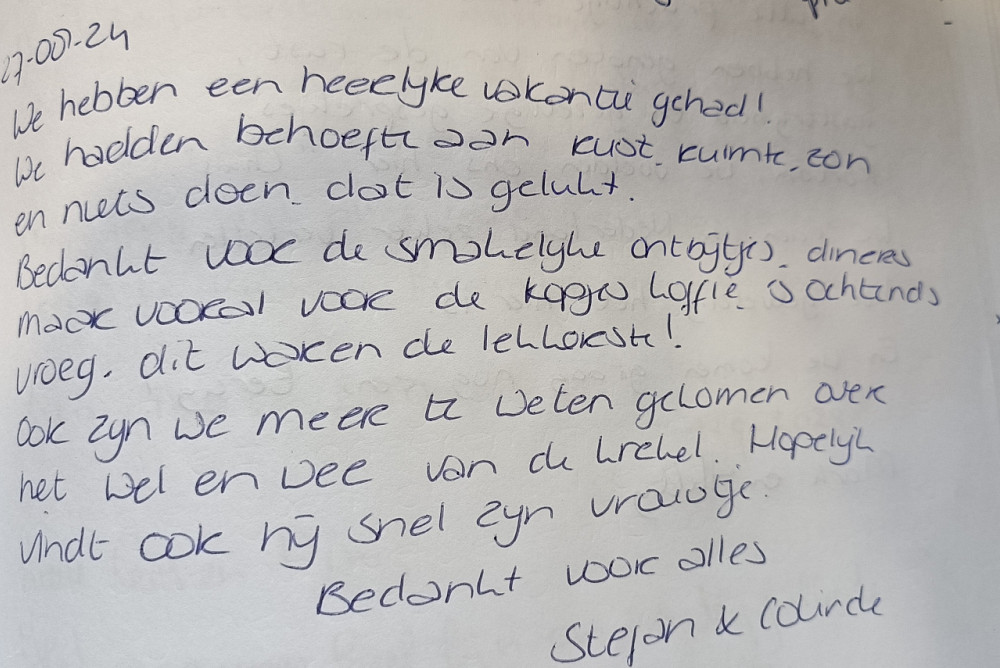 27-05-24
We hebben een heerlyke vakantie gehad!
We hadden behoefte aan rust, ruimte, zon
en niets doen. dat is gelukt.
Bedankt voor de smakelyke ontbijtjes, diners
maar vooral voor de kopjes koffie 's ochtends
vroeg. dit waren de lekkerste!
Ook zyn we meer te weten gekomen over
het wel en wee van de krekel. Hopelyk
vindt ook hij snel zyn vrouwtje.
Bedankt voor alles
Stefan &